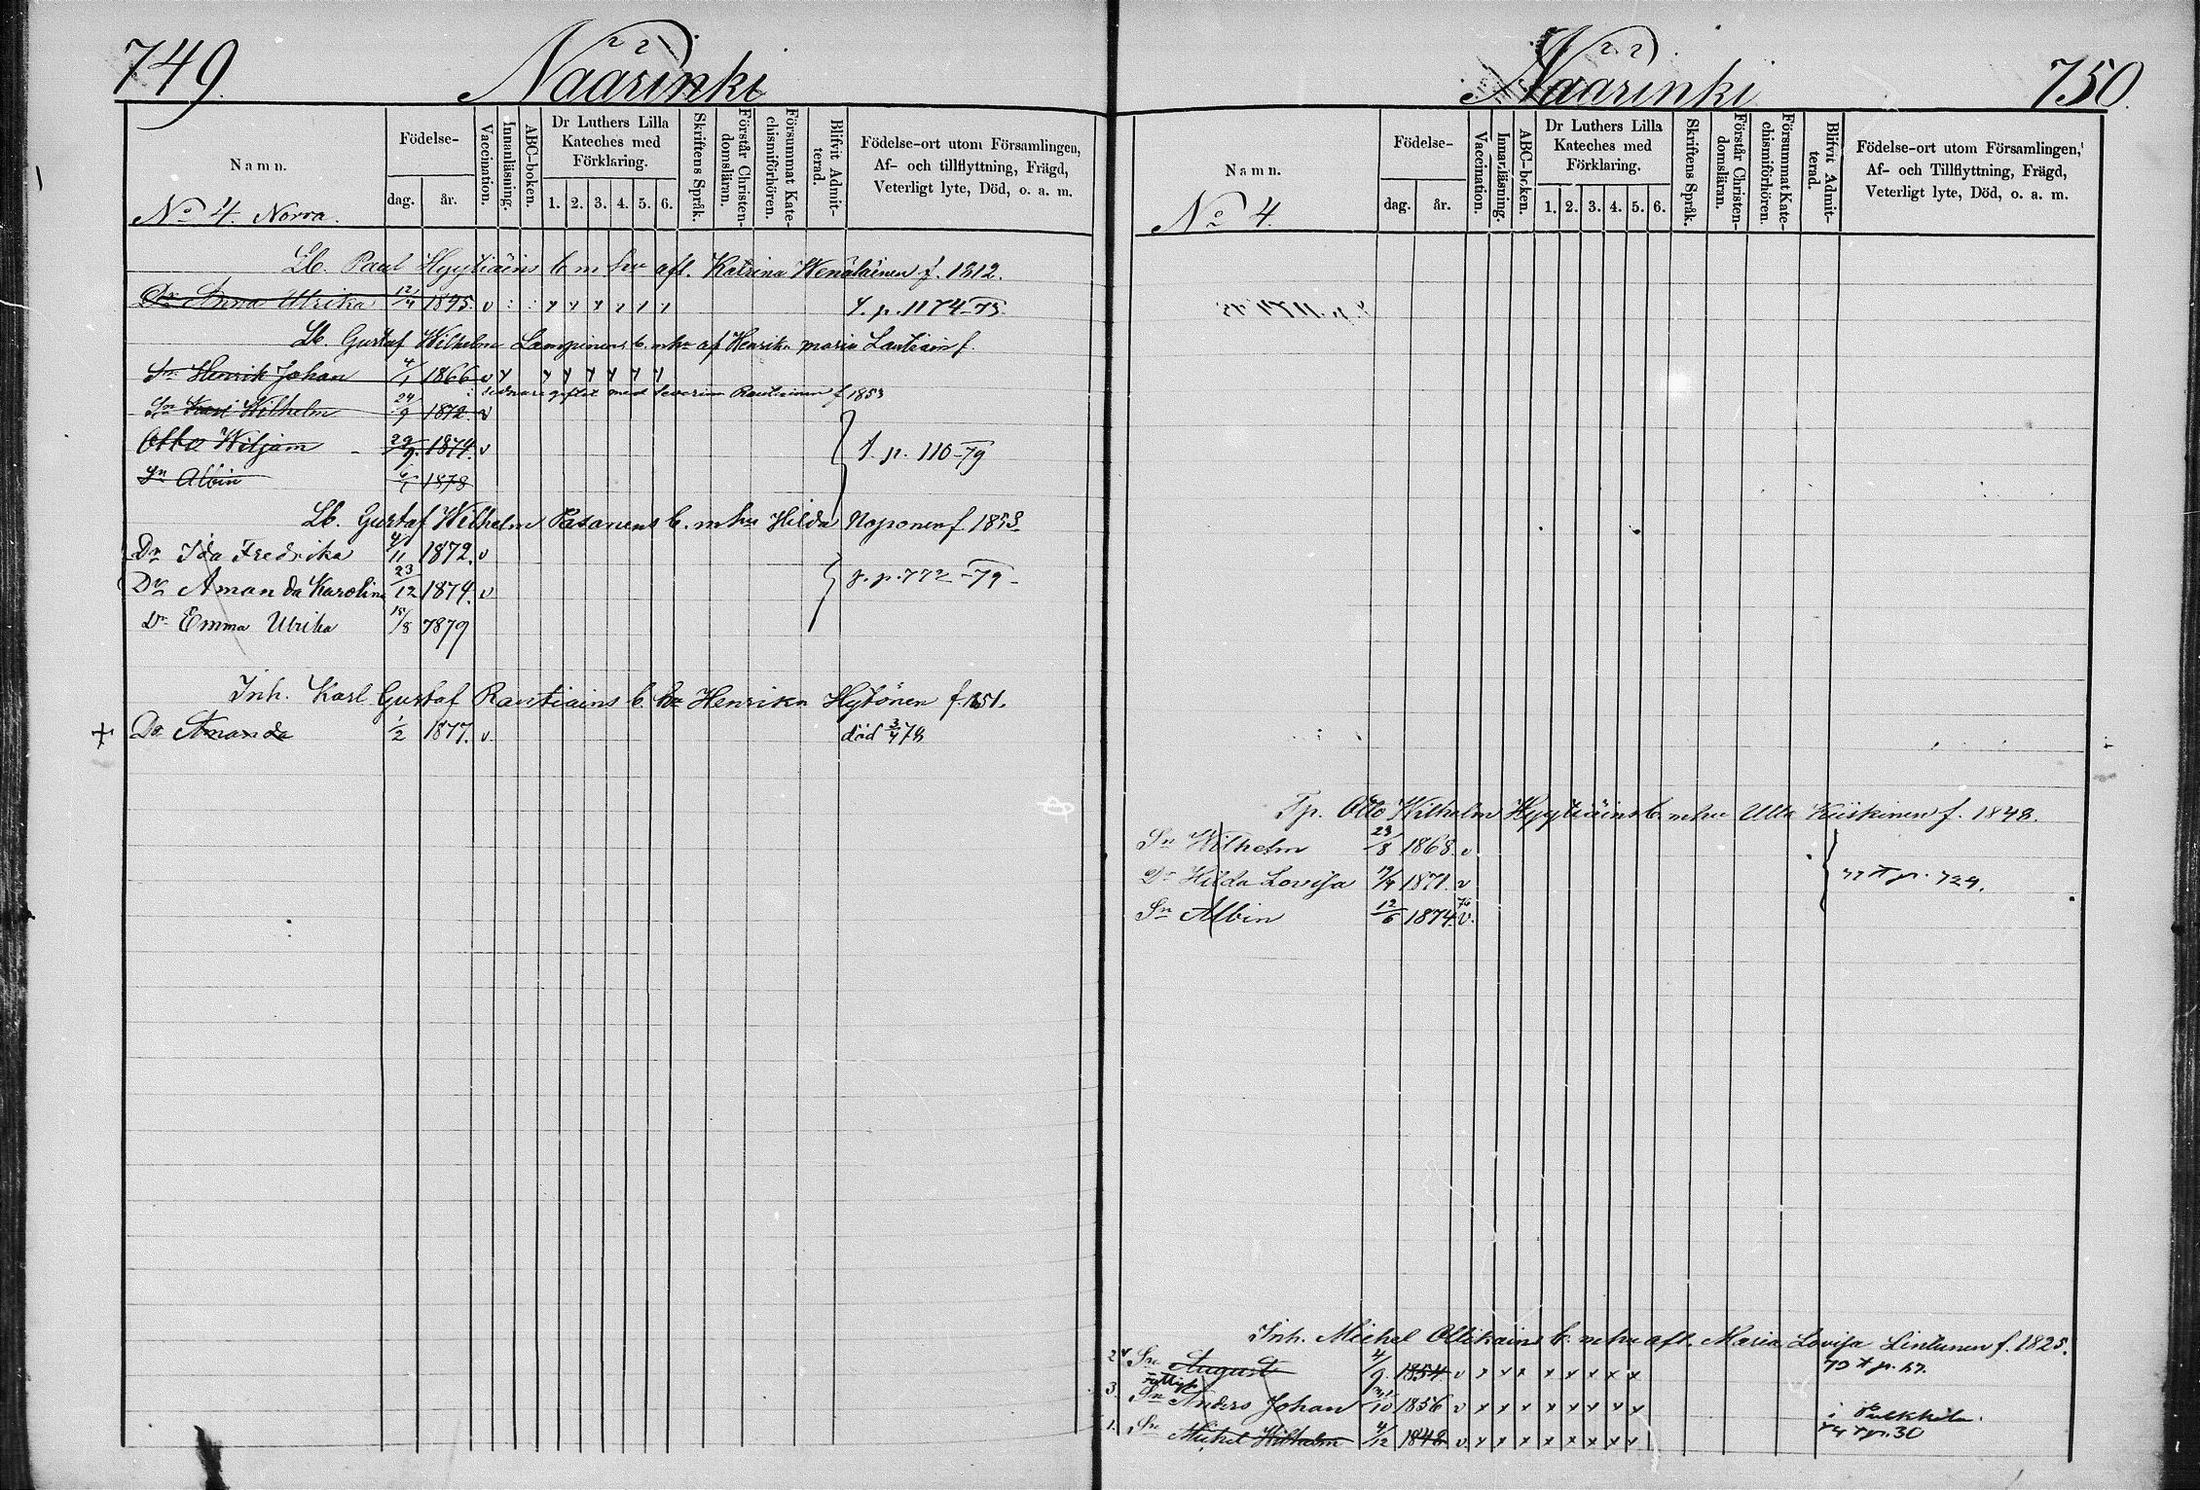 749.
Näärinki
Namn.
Födelse-
dag.
år.
Vaccination.
Innanläsning.
ABC-boken.
Dr Luthers Lilla
Kateches med
Förklaring.
1. 2. 3. 4. 5. 6.
Skriftens Språk.
Förstår Christen-
domsläran.
Försummat Kate-
chismiförhören.
Blifvit Admit-
terad.
Födelse-ort utom Församlingen,
Af- och tillflyttning, Frägd,
Veterligt lyte, Död, o. a. m.
No 4. Norra.
Lb. Paul Hyytiäins b m hu afl. Katrina Wenäläinen f. 1812.
Dr Anna Ulrika 12/4 1845. v f. p. 1174-75.
Lb. Gustaf Wilhelm Lampinens b. mhu af Henrika maria Lautiain f.
Sn Henrik Johan 4/1 1866 v
sednare giftet med Severin Rautiainen f 1853
Sn Karl Wilhelm 24/9 1872. v
Otto Wiljam 29/9. 1874. v f. p. 110-79
Sn Albin 6/1 1878
Lb. Gustaf Wilhelm Pasanens b. mhu Hilda Noponen f. 1853.
Dr Ida Fredrika 4/11 1872. v
Dr Amanda Karolina 23/12 1874. v f. p. 772-79-
Dr Emma Ulrika 15/8 1879
Inh. Karl Gustaf Rautiains b. hu Henrika Hytönen f. 1851.
+ Dr Amanda 1/2 1877. v. död 3/4 78
Näärinki
750.
Namn.
Födelse-
dag.
år.
Vaccination.
Innanläsning.
ABC-boken.
Dr Luthers Lilla
Kateches med
Förklaring.
1. 2. 3. 4. 5. 6.
Skriftens Språk.
Förstår Christen-
domsläran.
Försummat Kate-
chismiförhören.
Blifvit Admit-
terad.
Födelse-ort utom Församlingen,
Af- och Tillflyttning, Frägd,
Veterligt lyte, Död, o. a. m.
No 4.
Tp. Otto Wilhelm Hyytiäins b. mhu Ulla Kiiskinen f. 1848.
Sn Wilhelm 23/8 1868. v
Dr Hilda Lovisa 19/4 1871. v 77 p. 729.
Sn Albin 12/6 1874. 76 v.
Inh. Michel Ollikains b. mhu afl. Maria Lovisa Lintunen f. 1825.
2 Sn August 4/9. 1854 v x x x x x x x x
3. Sn Anders Johan /10 1856 v x x x x x x x x i
1. Sn Michel Wilhelm 4/12 1848 v x x x x x x x x 74 p. 30